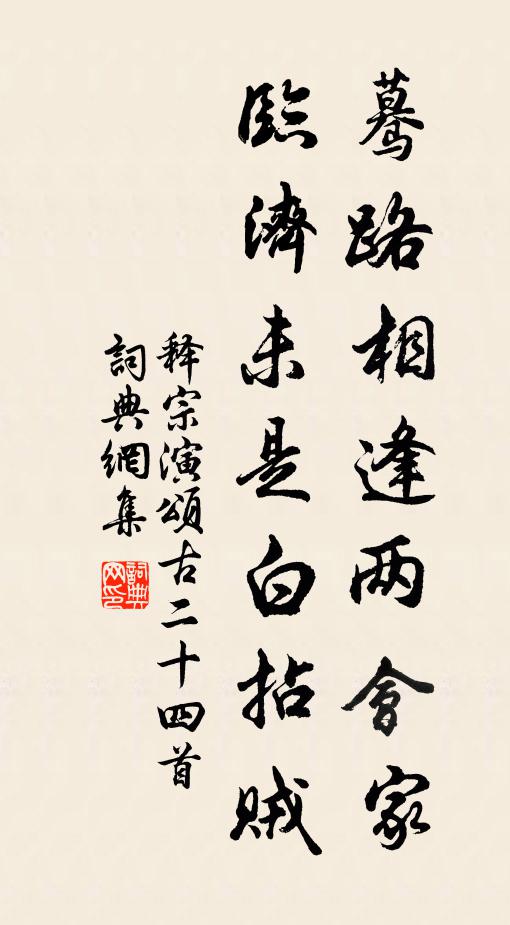 蓦路相逢两會家
臨濟未是白拈賊
释宗演頌古二十四首
詞典網集
詞典网印